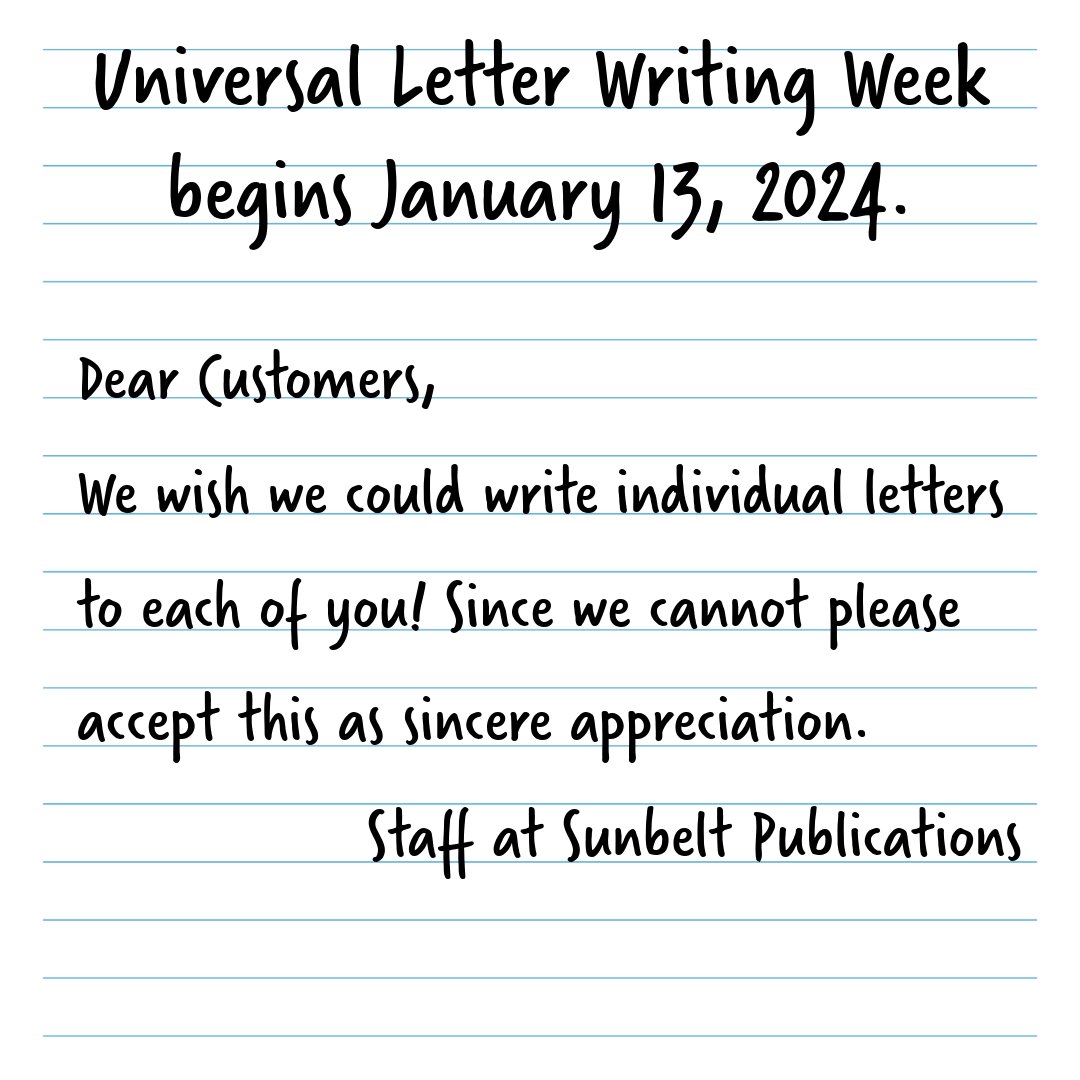 Universal Letter Writing Week
begins January 13, 2024.
Dear Customers,
We wish we could write individual letters
to each of you! Since we cannot please
accept this as sincere appreciation.
Staff at Sunbelt Publications